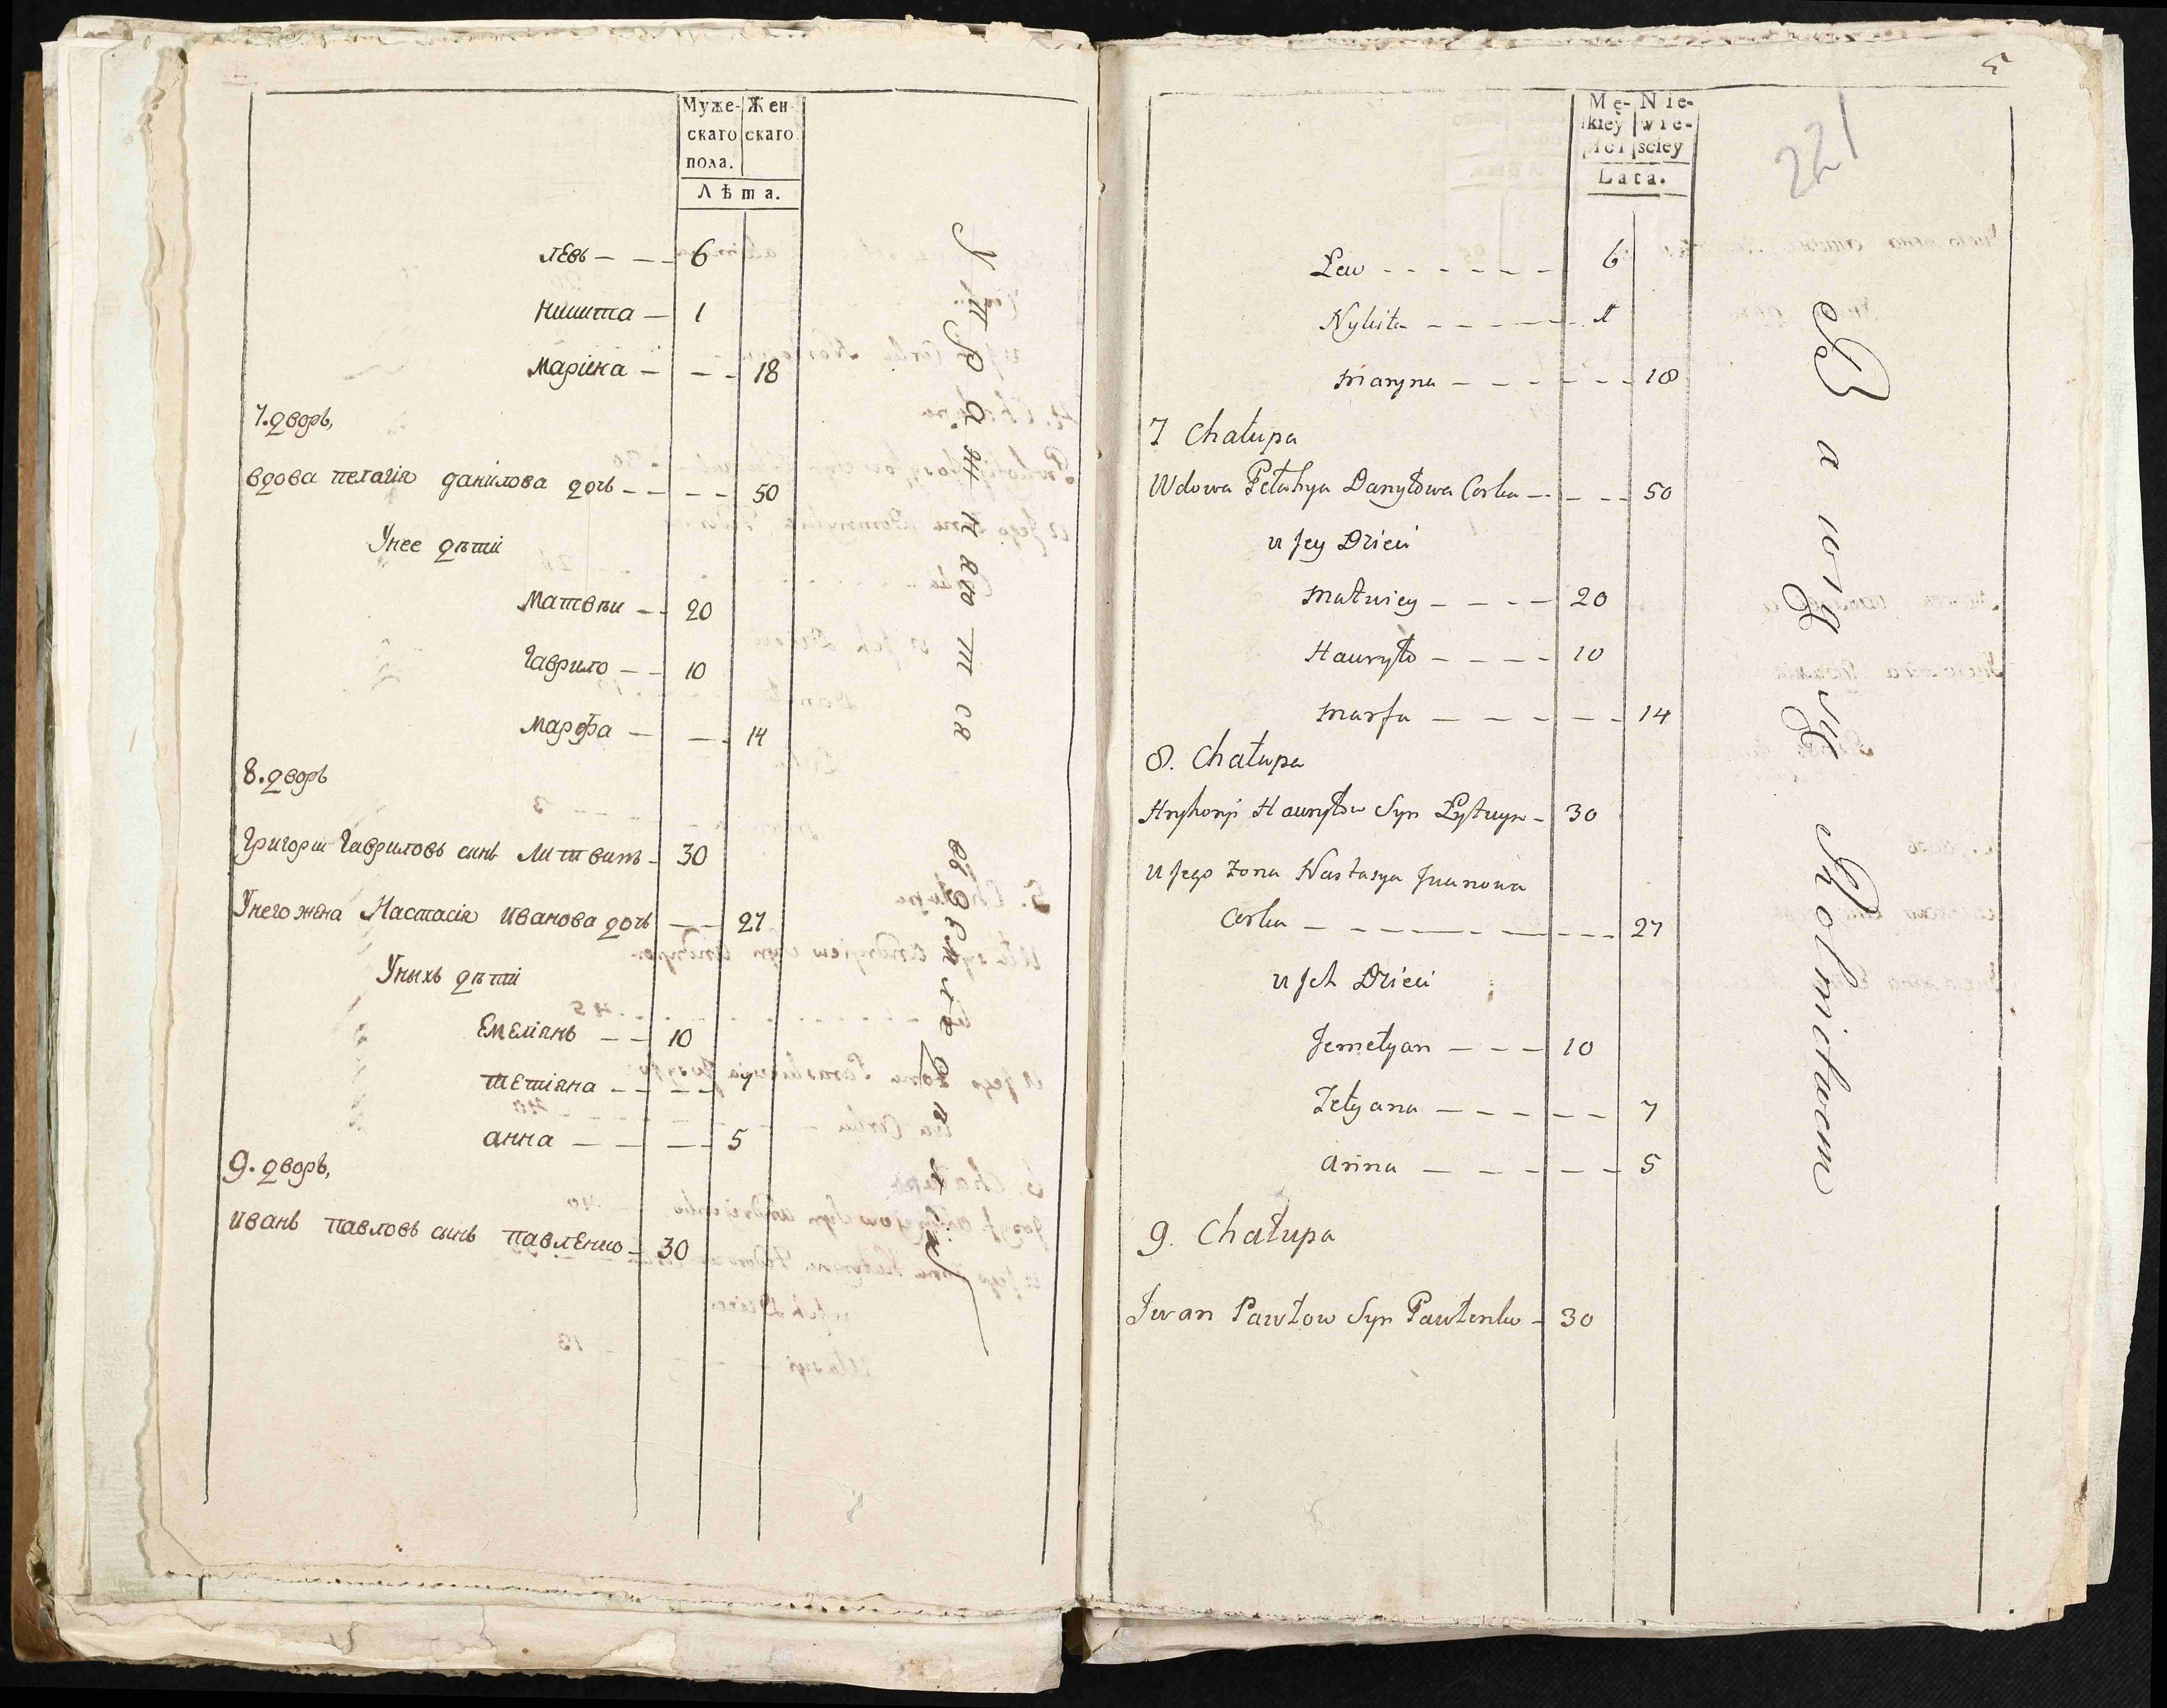 Муже- Жен-
скаго скаго
пола.
Лѣта.
левъ — — — 6
Никита — 1
Марина — — — 18
7. дворъ,
вдова пелагія данилова дочь — — — — 50
Унее дѣти
Матвѣи — — 20
Гаврило — — 10
Марфа — — 14
8. дворъ
Григори Гавриловъ синъ Литвинъ — 30
Унего жена Настасія иванова дочь — — 27
Уныхъ дѣти
Емеліянъ — — 10
тетіяна — — — — 7
анна — — — 5
9. дворъ,
иванъ павловъ синъ павленко — 30
5
221
Mę- Nie-
skiey wie-
płci sciey
Lata.
Lew - - - - - - 6
Nykita - - - - - - 1
Maryna - - - - - - - 18
7 Chałupa
Wdowa Pełahya Danyłowa Corka - - - - 50
u Jey Dzieci
Matwiey - - - - 20
Hawryło - - - - 10
Marfa - - - - - - 14
8. Chałupa
Hryhoryi Hawryłow Syn Lytwyn - 30
u Jego Zona Nastasya Jwanowa
Corka - - - - - - - - 27
u Jch Dzieci
Jemelyan - - - 10
Tetyana - - - - - 7
Anna - - - - - 5
9. Chałupa
Jwan Pawłow Syn Pawlenko - 30